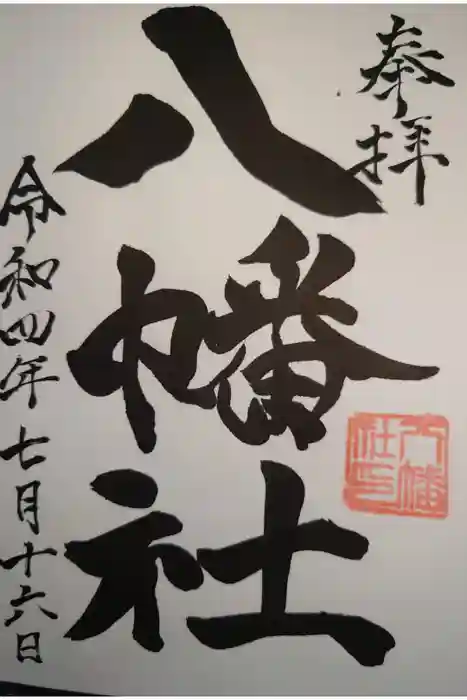 奉拝
八幡社
令和四年七月十六日
八幡
社印